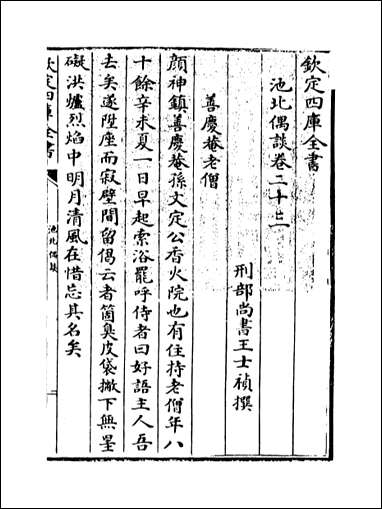 欽定四庫全書
池北偶談卷二十三
刑部尚書王士禎撰
善慶菴老僧
顔神鎮善慶菴孫文定公香火院也有住持老僧年八
十餘辛未夏一日早起索浴罷呼侍者曰好語主人吾
去矣遂陞座而寂壁間留偈云者箇臭皮袋撇下無罣
礙洪爐烈焰中明月清風在惜忘其名矣
欽定四庫全書
池北偶談